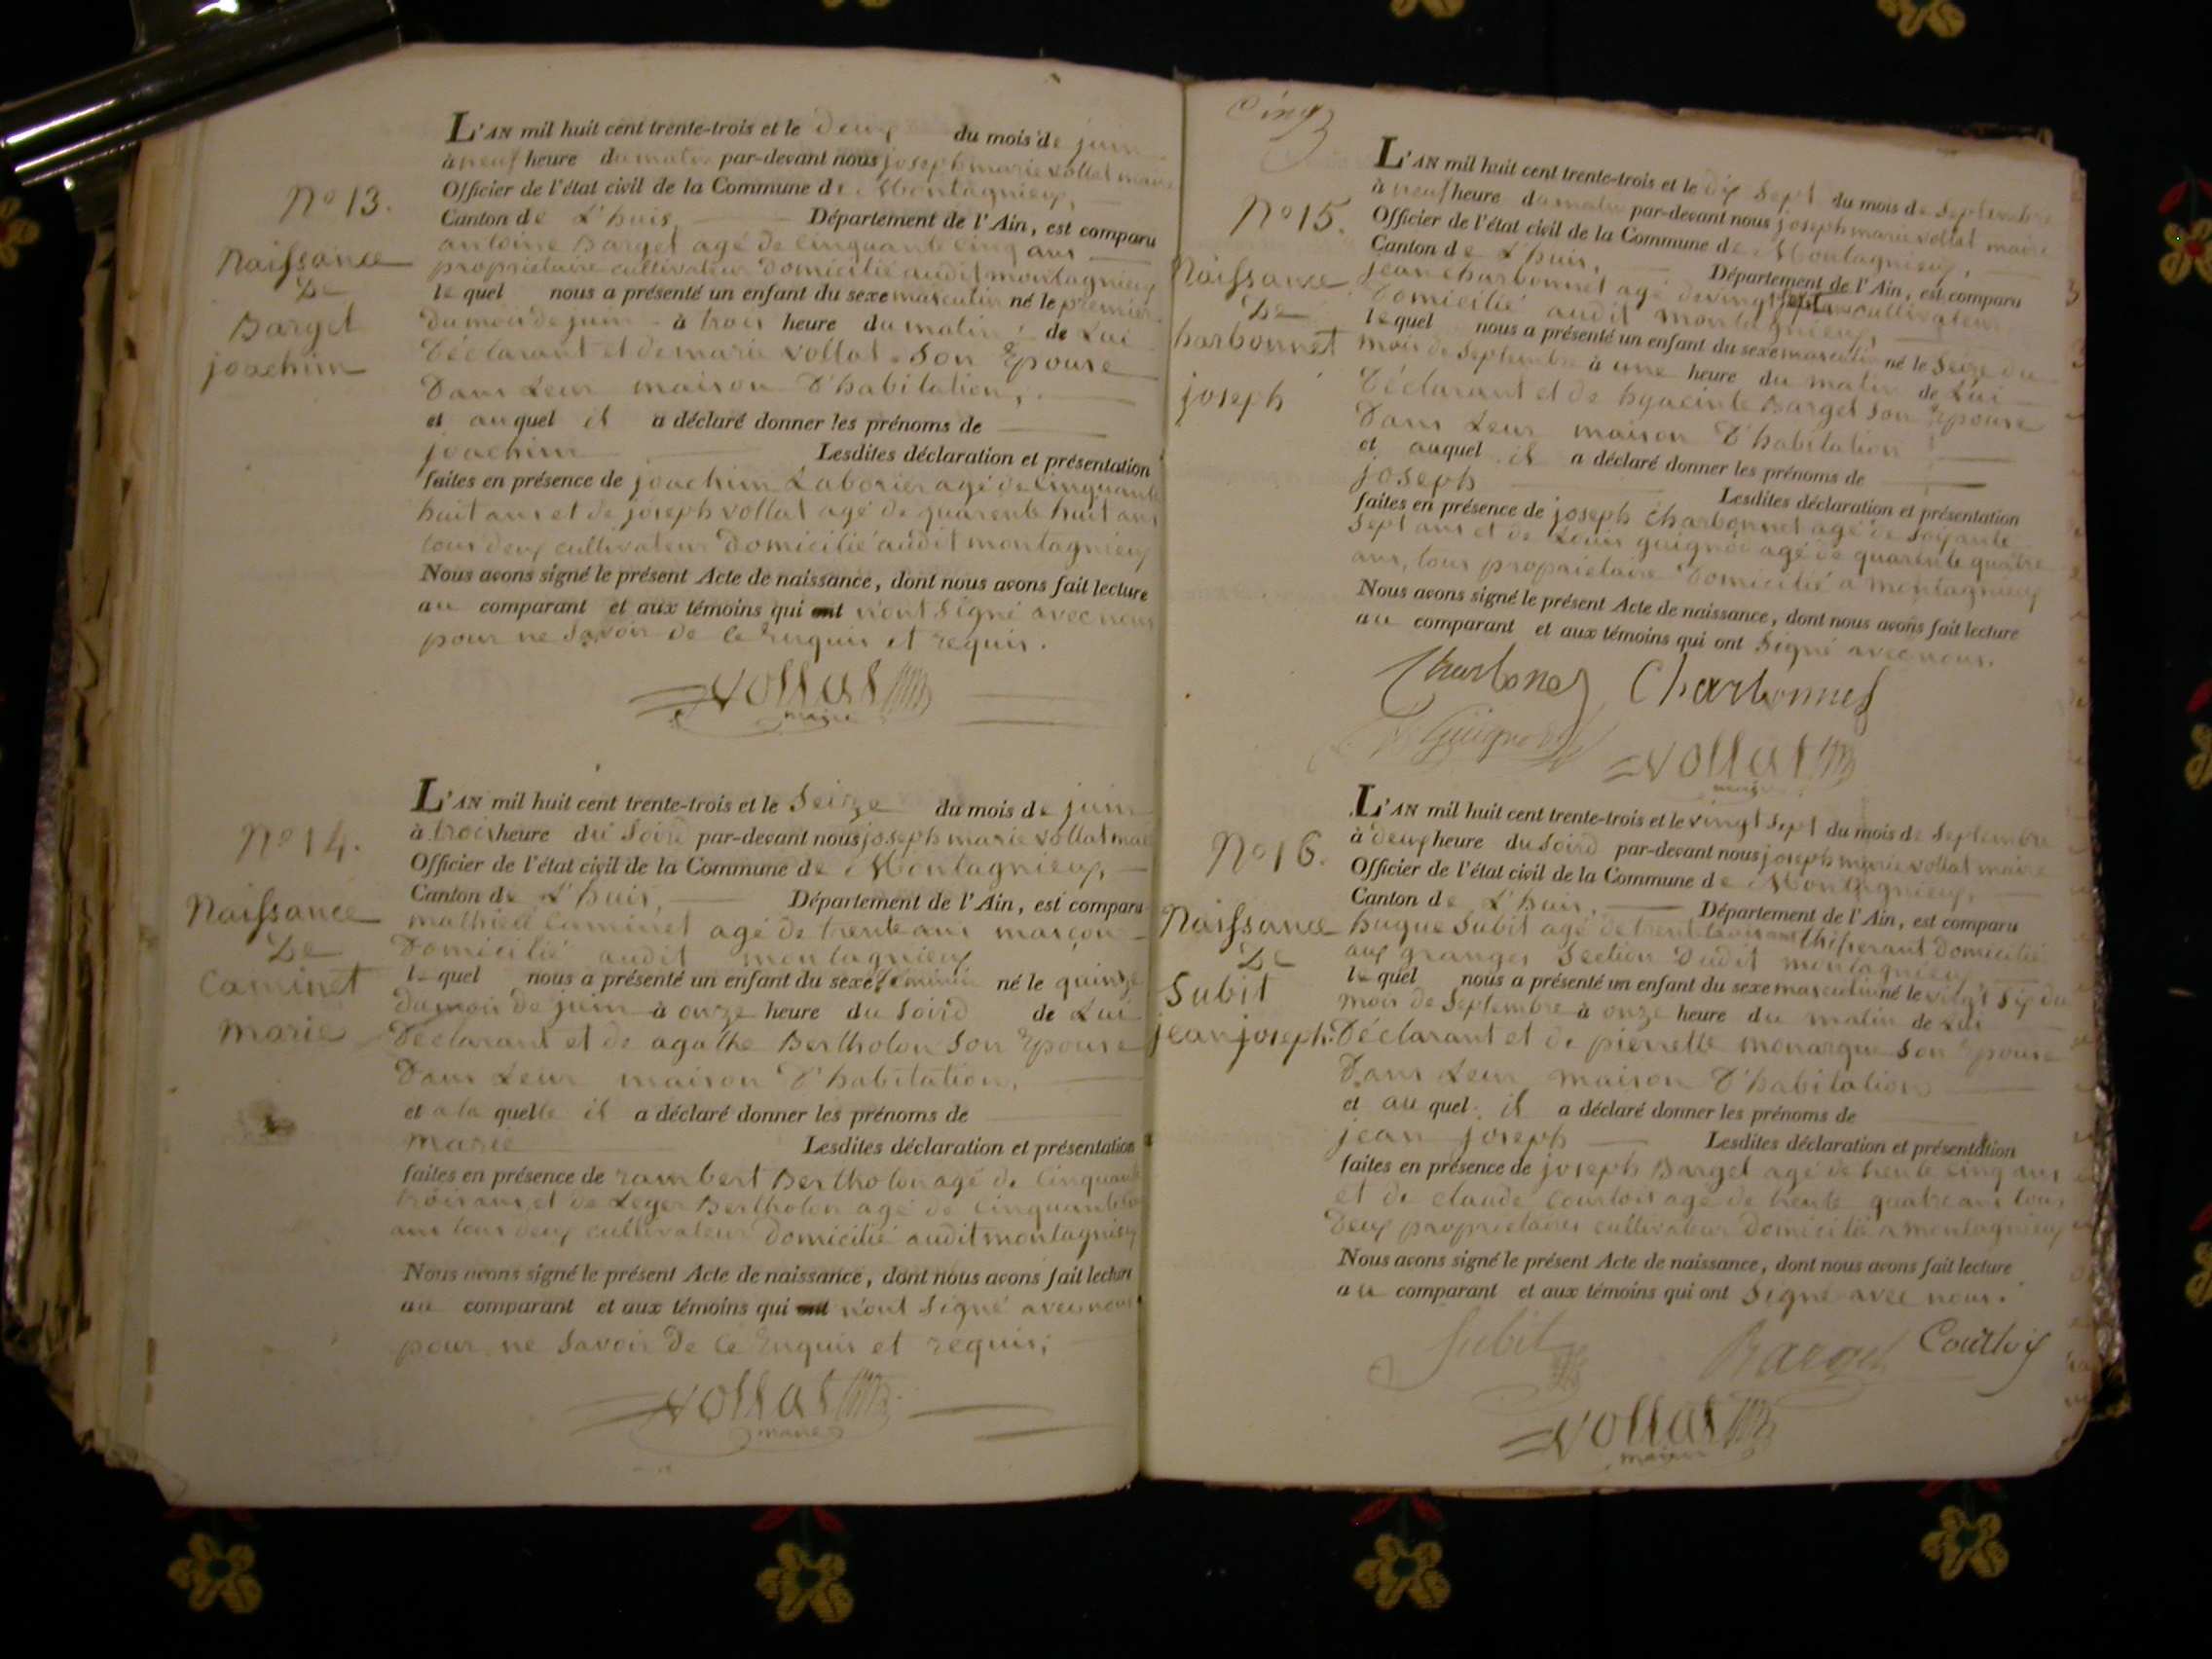 N° 13.
Naissance
De
Barget
joachim
L'AN mil huit cent trente-trois et le deux du mois de juin
à neuf heure du matin par-devant nous joseph marie vollat maire
Officier de l'état civil de la Commune de Montagnieux,
Canton de L'huis, Département de l'Ain, est comparu
antoine Barget agé de cinquante cinq ans
proprietaire cultivateur Domicilié audit montagnieux
lequel nous a présenté un enfant du sexe masculin né le premier
du mois de juin à trois heure du matin de Lui
Déclarant et de marie vollat son Epouse
Dans Leur maison D'habitation,
et auquel il a déclaré donner les prénoms de
joachim Lesdites déclaration et présentation
faites en présence de joachim Laborier agé de cinquante
huit ans et de joseph vollat agé de quarente huit ans
tous deux cultivateur Domicilié audit montagnieux
Nous avons signé le présent Acte de naissance, dont nous avons fait lecture
au comparant et aux témoins qui ont n'ont signé avec nous
pour ne savoir de ce Enquis et requis.
vollat
maire
N° 14.
Naissance
De
Caminet
marie
L'AN mil huit cent trente-trois et le seize du mois de juin
à trois heure du soird par-devant nous joseph marie vollat mai
Officier de l'état civil de la Commune de Montagnieux,
Canton de L'huis, Département de l'Ain, est comparu
mathieu Caminet agé de trente ans maçon
Domicilié audit montagnieux
lequel nous a présenté un enfant du sexe féminin né le quinze
du mois de juin à onze heure du soird de Lui
Déclarant et de agathe Bertholon son Epouse
Dans Leur maison D'habitation,
et a la quelle il a déclaré donner les prénoms de
marie Lesdites déclaration et présentation
faites en présence de rambert Bertholon agé de cinquante
trois ans et de Leger Bertholon agé de
ans tous deux cultivateur Domicilié audit montagnieux
Nous avons signé le présent Acte de naissance, dont nous avons fait lecture
au comparant et aux témoins qui ont n'ont signé avec nous
pour ne savoir de ce Enquis et requis;
vollat
maire
Cinq
N° 15.
Naissance
De
harbonnet
joseph
L'AN mil huit cent trente-trois et le dix sept du mois de septembre
à neuf heure du matin par-devant nous joseph marie vollat maire
Officier de l'état civil de la Commune de Montagnieux,
Canton de L'huis, Département de l'Ain, est comparu
jean charbonnet agé de vingt sept ans cultivateur
Domicilié audit montagnieux,
lequel nous a présenté un enfant du sexe masculin né le seize du
mois de septembre à une heure du matin de Lui
Déclarant et de hyacinte Barget son Epouse
Dans Leur maison D'habitation
et auquel il a déclaré donner les prénoms de
joseph Lesdites déclaration et présentation
faites en présence de joseph charbonnet agé de soixante
sept ans et de Louis guignod agé de quarente quatre
ans, tous proprietaire Domicilié a montagnieux
Nous avons signé le présent Acte de naissance, dont nous avons fait lecture
au comparant et aux témoins qui ont signé avec nous.
Charbonet Charbonnet
Guignod vollat
maire
N° 16.
Naissance
De
Subit
jean joseph.
L'AN mil huit cent trente-trois et le vingt sept du mois de septembre
à deux heure du soird par-devant nous joseph marie vollat maire
Officier de l'état civil de la Commune de Montagnieux,
Canton de L'huis, Département de l'Ain, est comparu
hugue Subit agé de trente trois ans thisserant domicilié
aux granges section Dudit montagnieux
lequel nous a présenté un enfant du sexe masculin né le vingt six du
mois de septembre à onze heure du matin de Lui
Déclarant et de pierrette monarque son Epouse
Dans Leur maison D'habitation
et auquel il a déclaré donner les prénoms de
jean joseph Lesdites déclaration et présentation
faites en présence de joseph Barget agé de trente cinq ans
et de claude courtois agé de trente quatre ans tous
Deux proprietaires cultivateur Domicilié a montagnieux
Nous avons signé le présent Acte de naissance, dont nous avons fait lecture
au comparant et aux témoins qui ont signé avec nous.
Subit Barget Courtois
vollat
maire